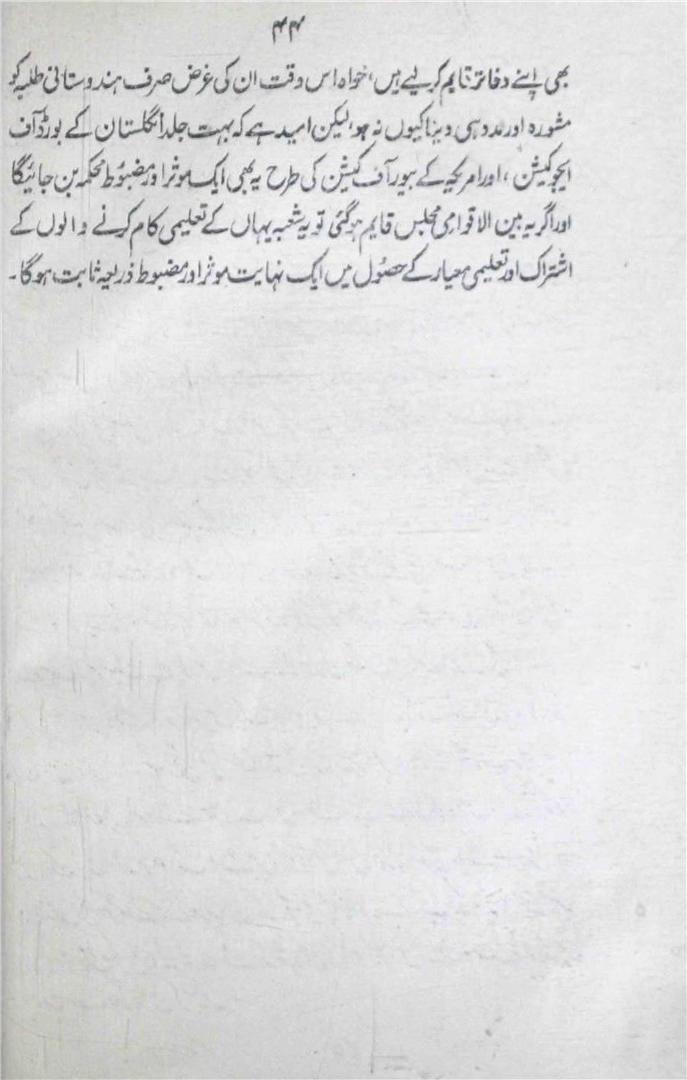 ۴۴
بھی اپنے دفاتر قایم کرلیے ہیں، خواہ اس وقت ان کی غرض صرف ہندوستانی طلبہ کو
مشورہ اور مدد ہی دینا کیوں نہ ہو، لیکن امید ہے کہ بہت جلد انگلستان کے بورڈ آف
ایجوکیشن، اور امریکہ کے بیور آف کیشن کی طرح یہ بھی ایک موثر اور مضبُوط محکمہ بن جائیگا
اور اگر یہ بین الاقوامی مجلس قایم ہوگئی تو یہ شعبہ یہاں کے تعلیمی کام کرنے والوں کے
اشتراک اور تعلیمی معیار کے حصُول میں ایک نہایت موثر اور مضبوط ذریعہ ثابت ہوگا۔